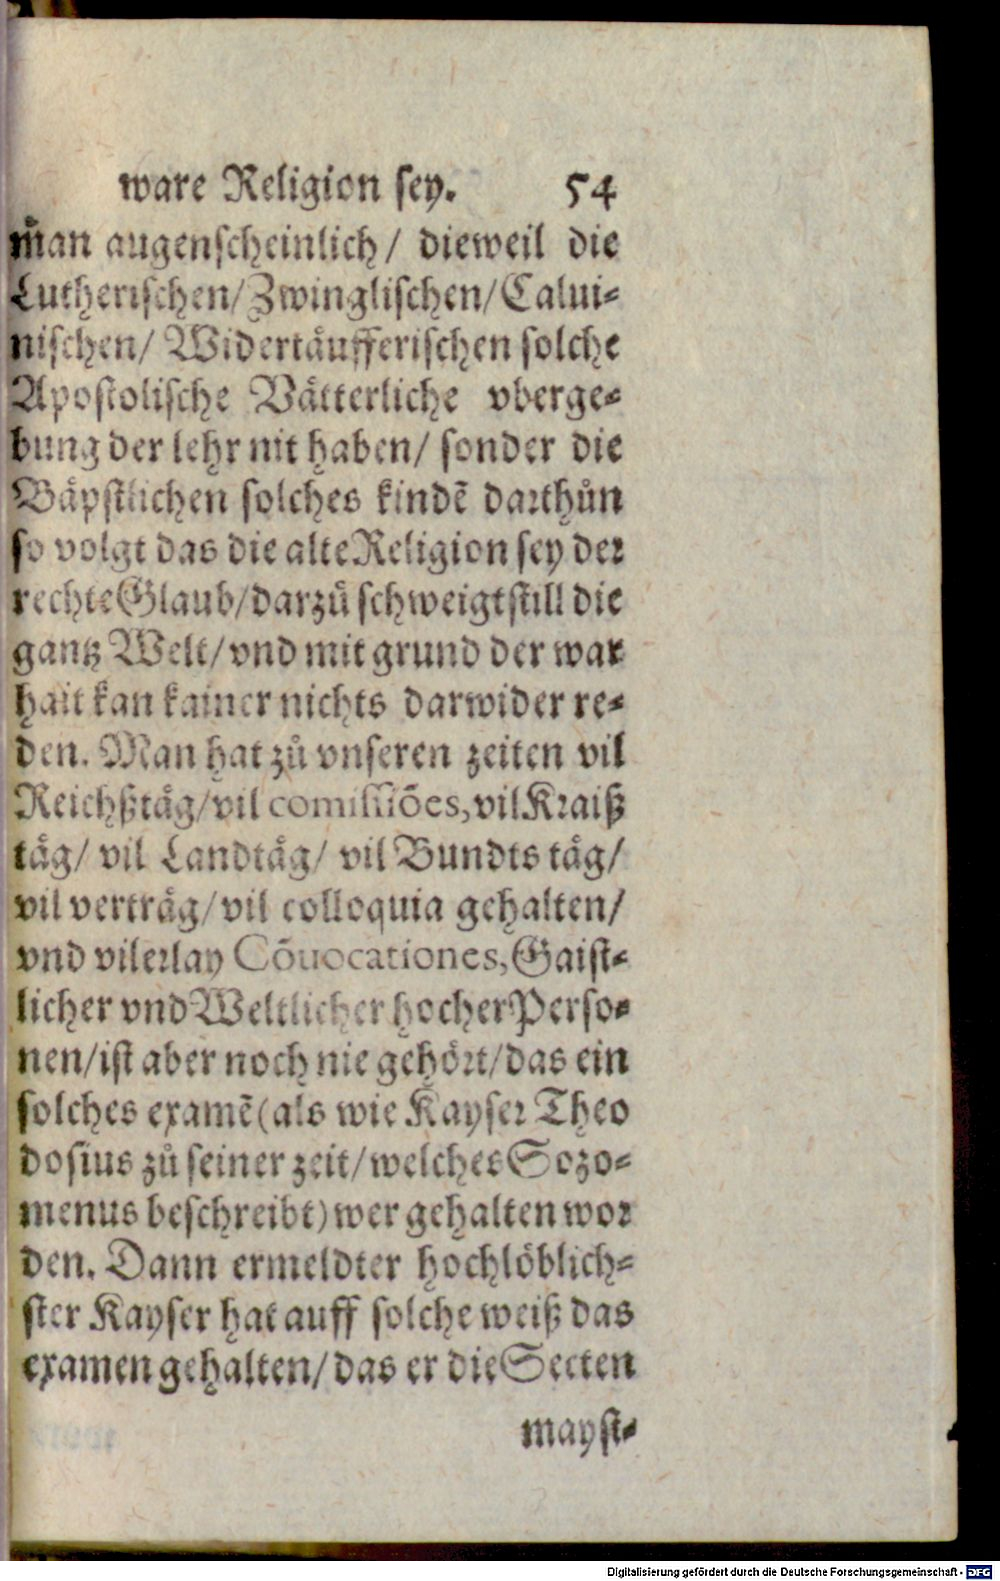 ware Religion sey. 54
man augenscheinlich/ dieweil die
Lutherischen/ Zwinglischen/ Calui-
nischen/ Widertäufferischen solche
Apostolische Vätterliche vberge-
bung der lehr nit haben/ sonder die
Bäpstlichen solches kindē darthůn
so volgt das die alte Religion sey der
rechte Glaub/ darzů schweigt still die
gantz Welt/ vnd mit grund der war
hait kan kainer nichts darwider re-
den. Man hat zů vnseren zeiten vil
Reichßtäg/ vil comissiōes, vil Kraiß
täg/ vil Landtäg/ vil Bundts täg/
vil verträg/ vil colloquia gehalten/
vnd vilerlay Cōuocationes, Gaist-
licher vnd Weltlicher hocher Perso-
nen/ ist aber noch nie gehört/ das ein
solches examē (als wie Kayser Theo
dosius zů seiner zeit/ welches Sozo-
menus beschreibt) wer gehalten wor
den. Dann ermeldter hochlöblich-
ster Kayser hat auff solche weiß das
examen gehalten/ das er die Secten
mayst-
Digitalisierung gefördert durch die Deutsche Forschungsgemeinschaft - DFG